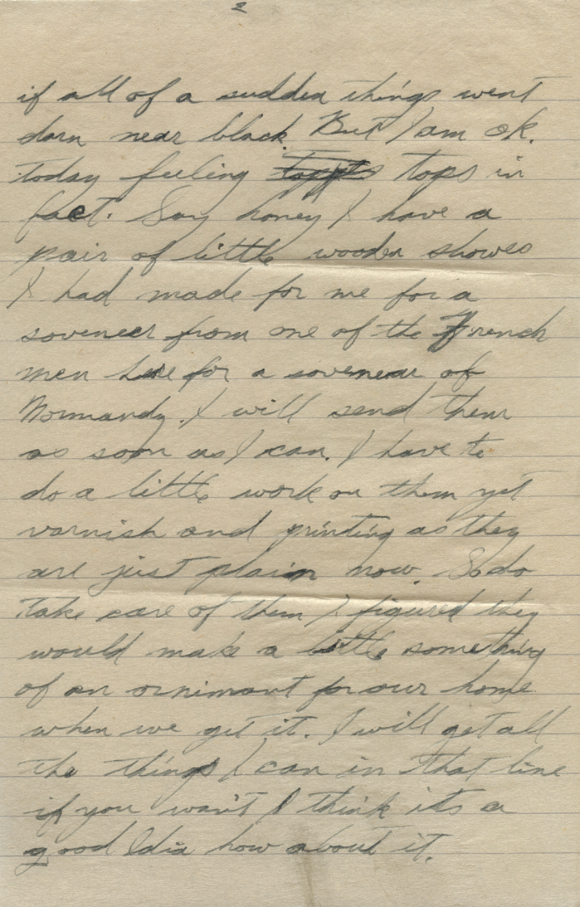 2
if all of a sudden things went
darn near black. But I am ok.
today feeling tops in
fact. Say honey I have a
pair of little wooden showes
I had made for me for a
soveneer from one of the French
men here for a soveneer of
Normandy. I will send them
as soon as I can. I have to
do a little work on them yet
varnish and printing as they
are just plain now. So do
take care of them I figured they
would make a little something
of an ornimant for our home
when we get it. I will get all
the things I can in that line
if you want I think its a
good Idia how about it.